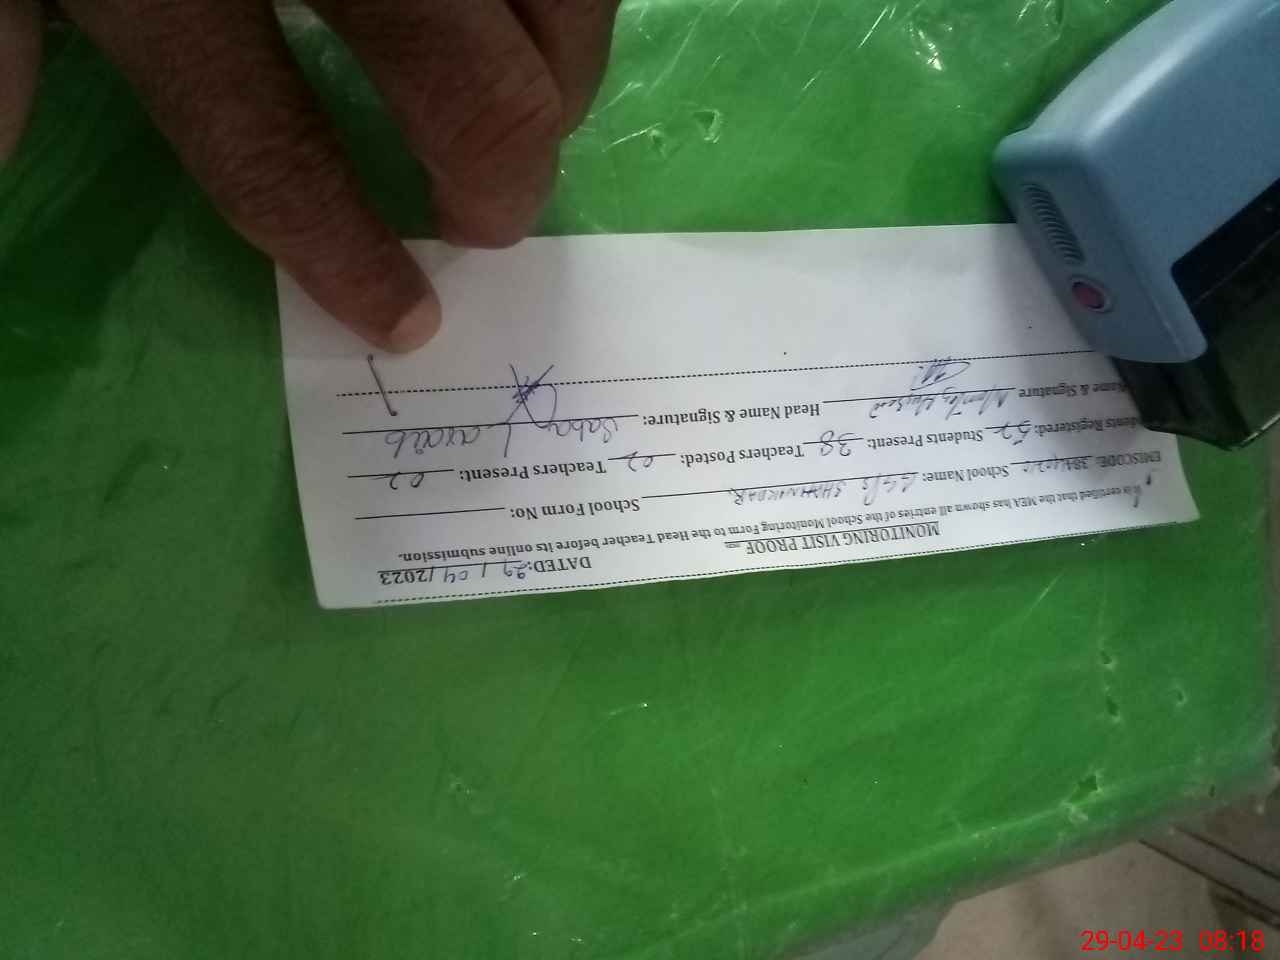 DATED: 29 / 04 / 2023
MONITORING VISIT PROOF
It is certified that the MEA has shown all entries of the School Monitoring Form to the Head Teacher before its online submission.
EMISCODE: School Name: GGPS School Form No:
Students Registered: 52 Students Present: 38 Teachers Posted: 02 Teachers Present: 02
Name & Signature Head Name & Signature: Saba
29-04-23 08:18